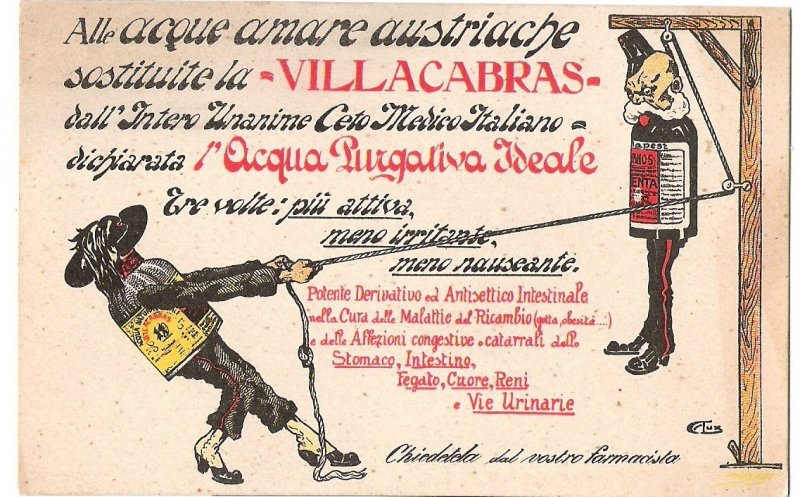 Alle acque amare austriache
sostituite la =VILLACABRAS=
dall'Intero Unanime Ceto Medico Italiano =
dichiarata l'Acqua Purgativa Ideale
Tre volte: più attiva,
meno irritante,
meno nauseante.
Potente Derivativo ed Antisettico Intestinale
nella Cura delle Malattie del Ricambio (gotta, obesità....)
e delle Affezioni congestive e catarrali dello
Stomaco, Intestino,
Fegato, Cuore, Reni
e Vie Urinarie
Chiedetela dal vostro Farmacista
apest
ANOS
ENTA
VILLACABRAS
Tux